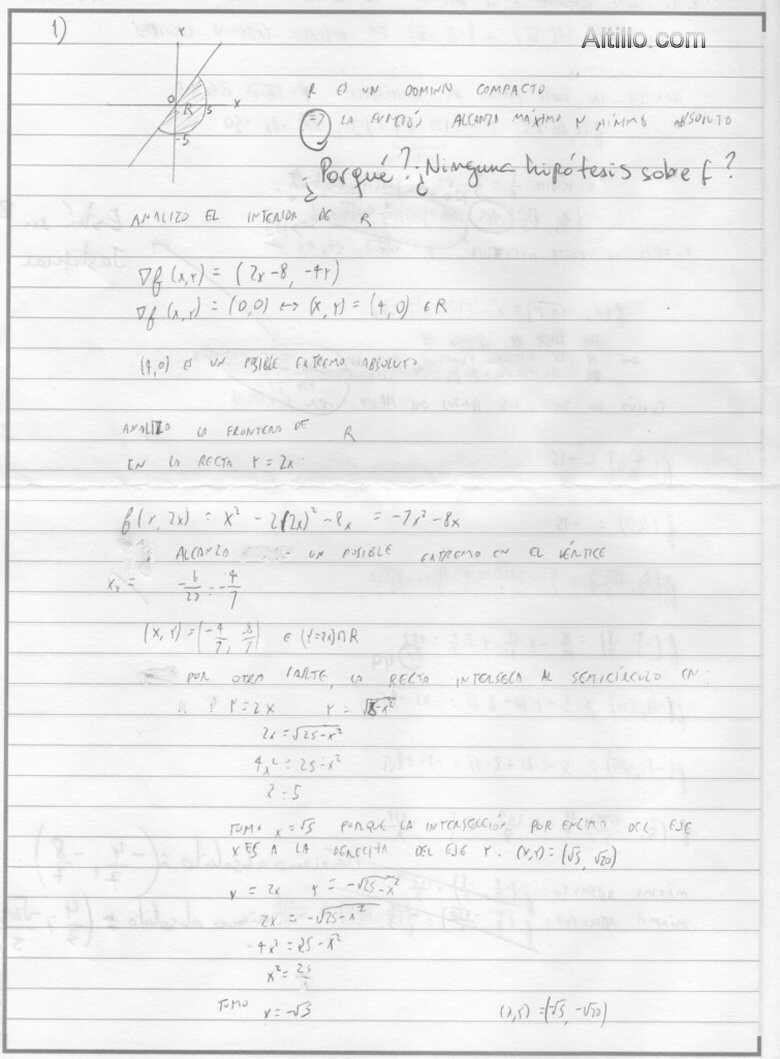 1)
Altillo.com
Y
O
R
5
X
-5
R ES UN DOMINIO COMPACTO
=> LA FUNCIÓN ALCANZA MÁXIMO Y MÍNIMO ABSOLUTO
¿Porqué? ¿Ninguna hipótesis sobre f?
ANALIZO EL INTERIOR DE R
∇f(x,y) = (2x-8, -4y)
∇f(x,y) = (0,0) ↔ (x,y) = (4,0) ∈R
(4,0) ES UN POSIBLE EXTREMO ABSOLUTO
ANALIZO LA FRONTERA DE R
EN LA RECTA Y=2x
f(x,2x) = x² - 2(2x)² - 8x = -7x² - 8x
ALCANZO UN POSIBLE EXTREMO EN EL VÉRTICE
= -4/7
(x,y) = (-4/7, 8/7) ∈ (Y=2x)∩R
POR OTRA PARTE, LA RECTA INTERSECA AL SEMICÍRCULO EN:
Y=2x
2x = √25-x²
4x² = 25-x²
TOMO x=√5 PORQUE LA INTERSECCIÓN POR ENCIMA DEL EJE
X ES A LA DERECHA DEL EJE Y. (x,y) = (√5, √20)
y = 2x y = -√25-x²
2x = -√25-x²
4x² = 25-x²
TOMO x = -√5 (x,y) = (-√5, -√20)